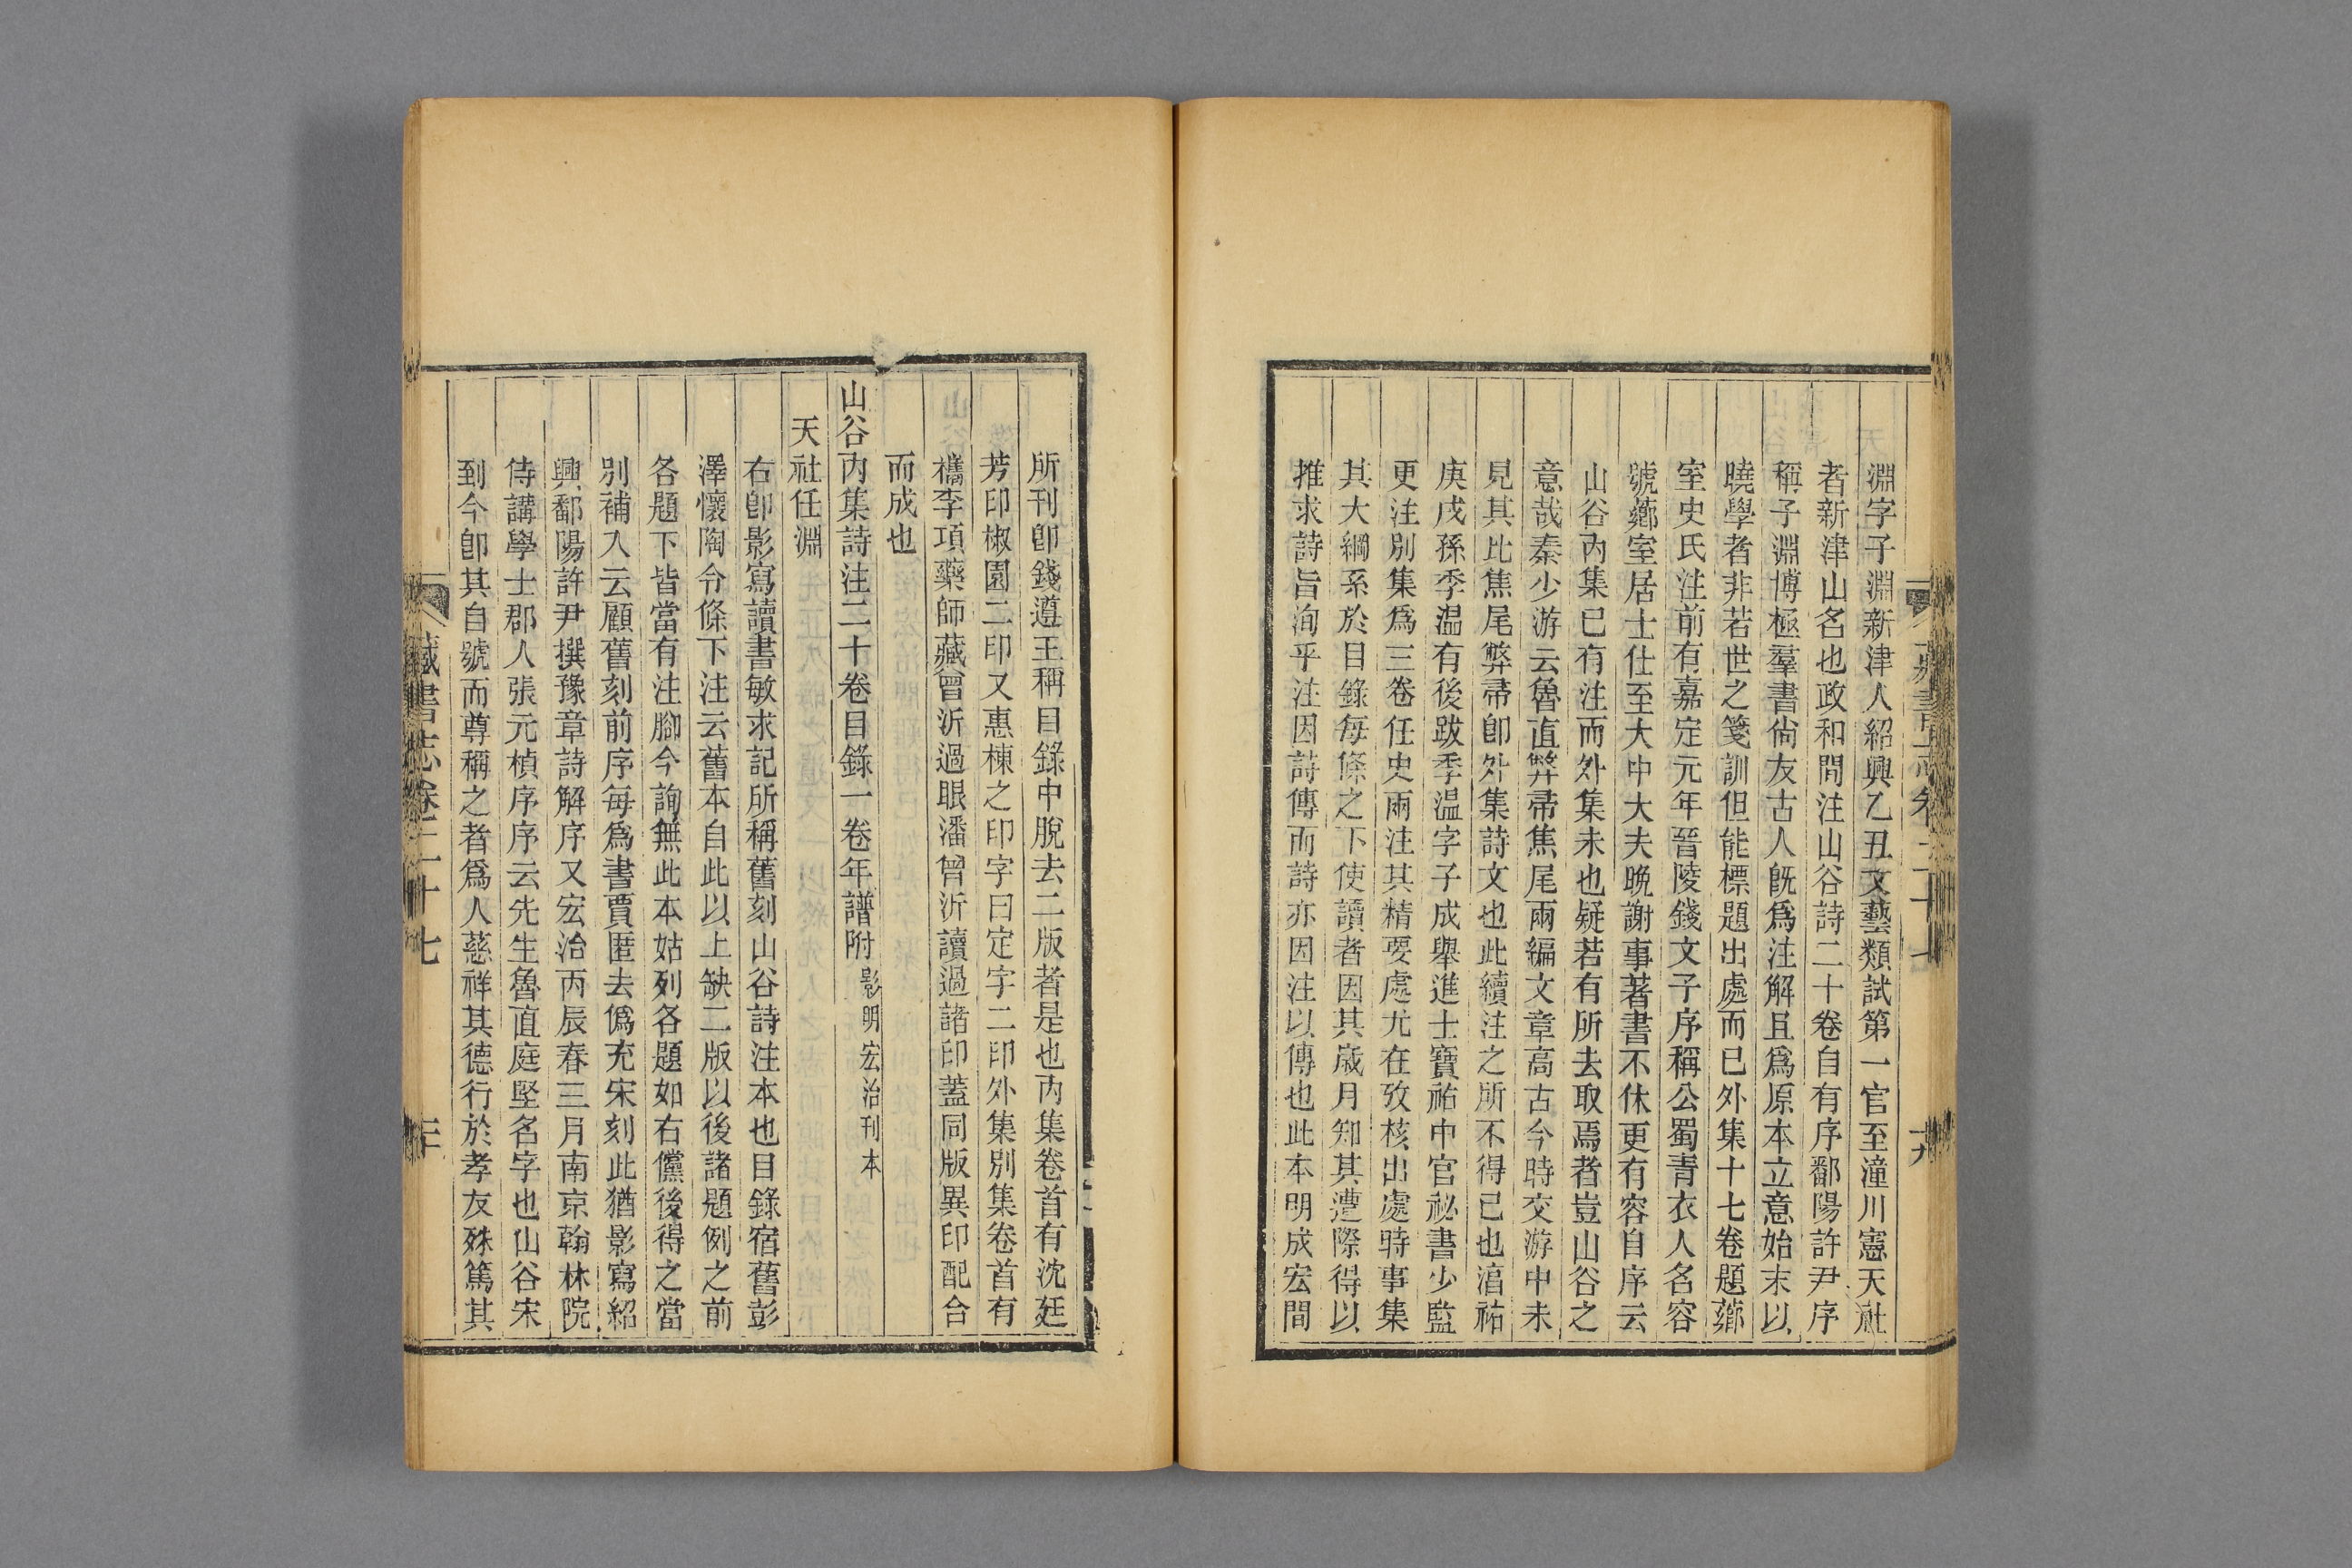 淵字子淵新津人紹興乙丑文藝類試第一官至潼川憲天社
者新津山名也政和間注山谷詩二十卷自有序鄱陽許尹序
稱子淵博極羣書尙友古人旣爲注解且爲原本立意始末以
曉學者非若世之箋訓但能標題出處而已外集十七卷題薌
室史氏注前有嘉定元年晉陵錢文子序稱公蜀青衣人名容
號薌室居士仕至大中大夫晚謝事著書不休更有容自序云
山谷內集已有注而外集未也疑若有所去取焉者豈山谷之
意哉秦少游云魯直弊帚焦尾兩編文章高古今時交游中未
見其比焦尾弊帚卽外集詩文也此續注之所不得已也湻祐
庚戌孫季温有後跋季温字子成舉進士寶祐中官祕書少監
更注別集爲三卷任史兩注其精要處尤在攷核出處時事集
其大綱系於目錄每條之下使讀者因其歲月知其遭際得以
推求詩旨洵乎注因詩傳而詩亦因注以傳也此本明成宏間
所刊卽錢遵王稱目錄中脫去二版者是也內集卷首有沈廷
芳印椒園二印又惠棟之印字曰定宇二印外集別集卷首有
檇李項藥師藏曾沂過眼潘曾沂讀過諸印蓋同版異印配合
而成也
山谷內集詩注二十卷目錄一卷年譜附 影明宏治刊本
天社任淵
右卽影寫讀書敏求記所稱舊刻山谷詩注本也目錄宿舊彭
澤懷陶令條下注云舊本自此以上缺二版以後諸題例之前
各題下皆當有注腳今詢無此本姑列各題如右儻後得之當
別補入云顧舊刻前序每爲書賈匿去僞充宋刻此猶影寫紹
興鄱陽許尹撰豫章詩解序又宏治丙辰春三月南京翰林院
侍講學士郡人張元楨序序云先生魯直庭堅名字也山谷宋
到今卽其自號而尊稱之者爲人慈祥其德行於孝友殊篤其
藏書志卷二十七